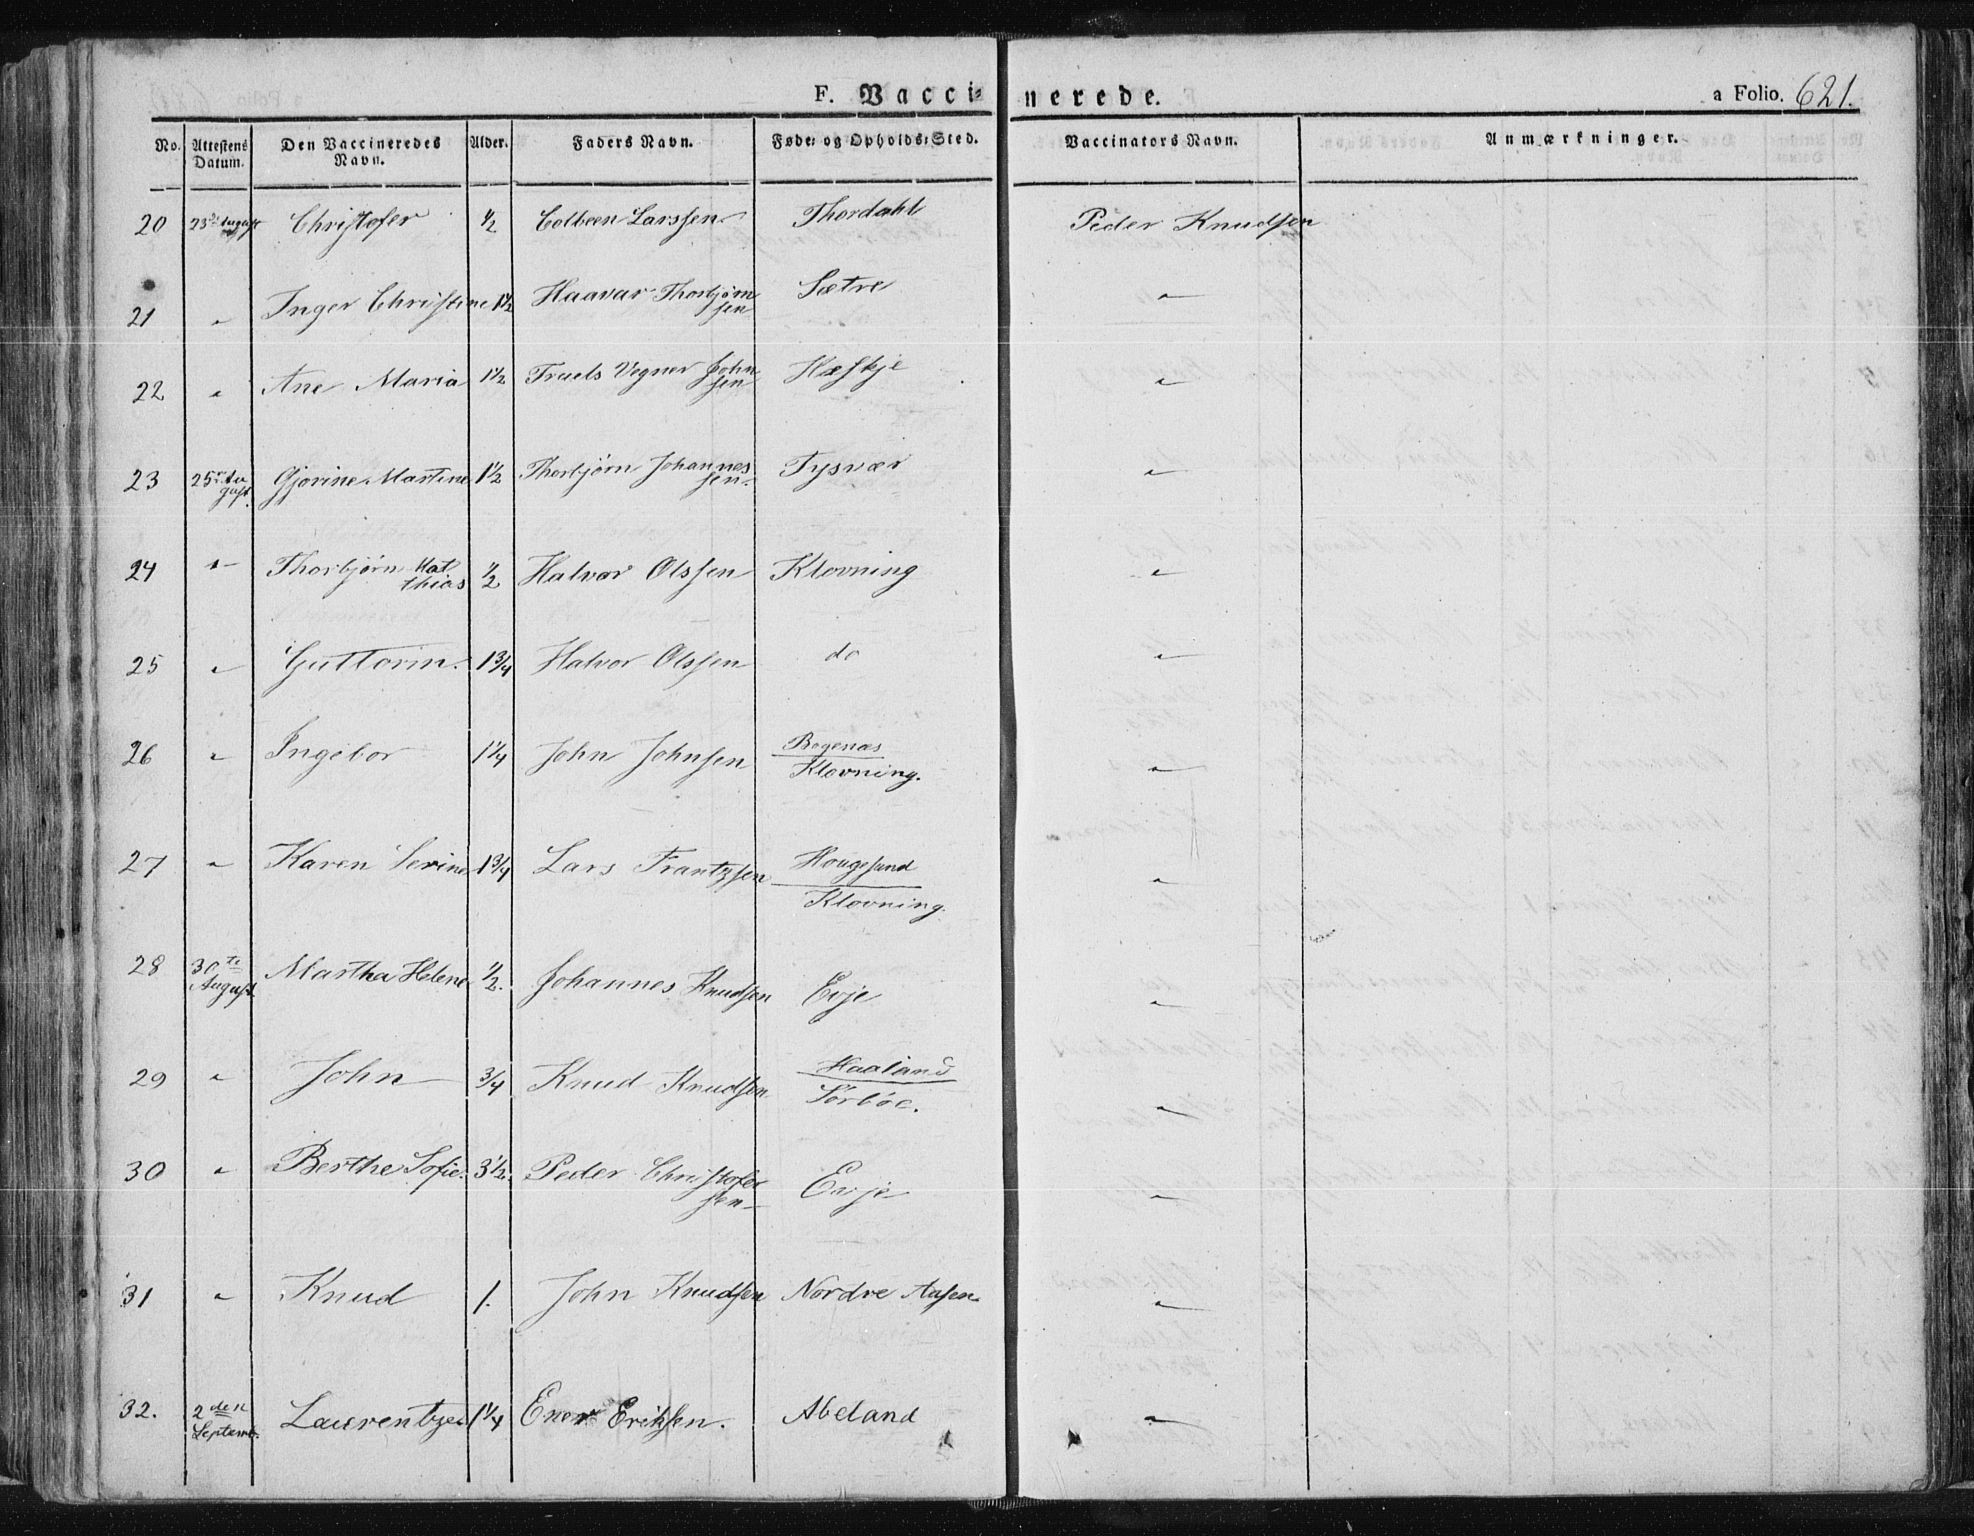 F. Vaccinerede. a Folio. 621.
No. Attestens Datum. Den Vaccineredes Navn. Alder. Faders Navn. Føde- og Opholds-Sted. Vaccinators Navn. Anmærkninger.
20 23de August Christofer 1/2 Colbeen Larssen Thordahl Peder Knudsen
21 " Inger Christine 1 1/2 Haavar Thorbjørnsen Sætre "
22 " Ane Maria 1 1/2 Truels Vegner Johnsen Hæskje "
23 25de August. Gjorine Martine 1 1/2 Thorbjørn Johannessen Tysvær "
24 " Thorbjørn Matthias 1/2 Halvor Olssen Klovning "
25 " Guttorm. 1 3/4 Halvor Olssen do "
26 " Ingebor 1 1/4 John Johnsen Bogenæs Klovning. "
27 " Karen Serine 1 3/4 Lars Frantzsen Hougesund Klovning. "
28 30te August Martha Helene 1/2. Johannes Knudsen Evje "
29 " John 3/4 Knud Knudsen Haaland Sørbøe. "
30 " Berthe Sofie. 3 1/2. Peder Christofersen Evje "
31 " Knud 1. John Knudsen Nordre Aasen "
32. 2den Septemb. Laurentze 1 1/4 Ener Eriksen. Abeland "